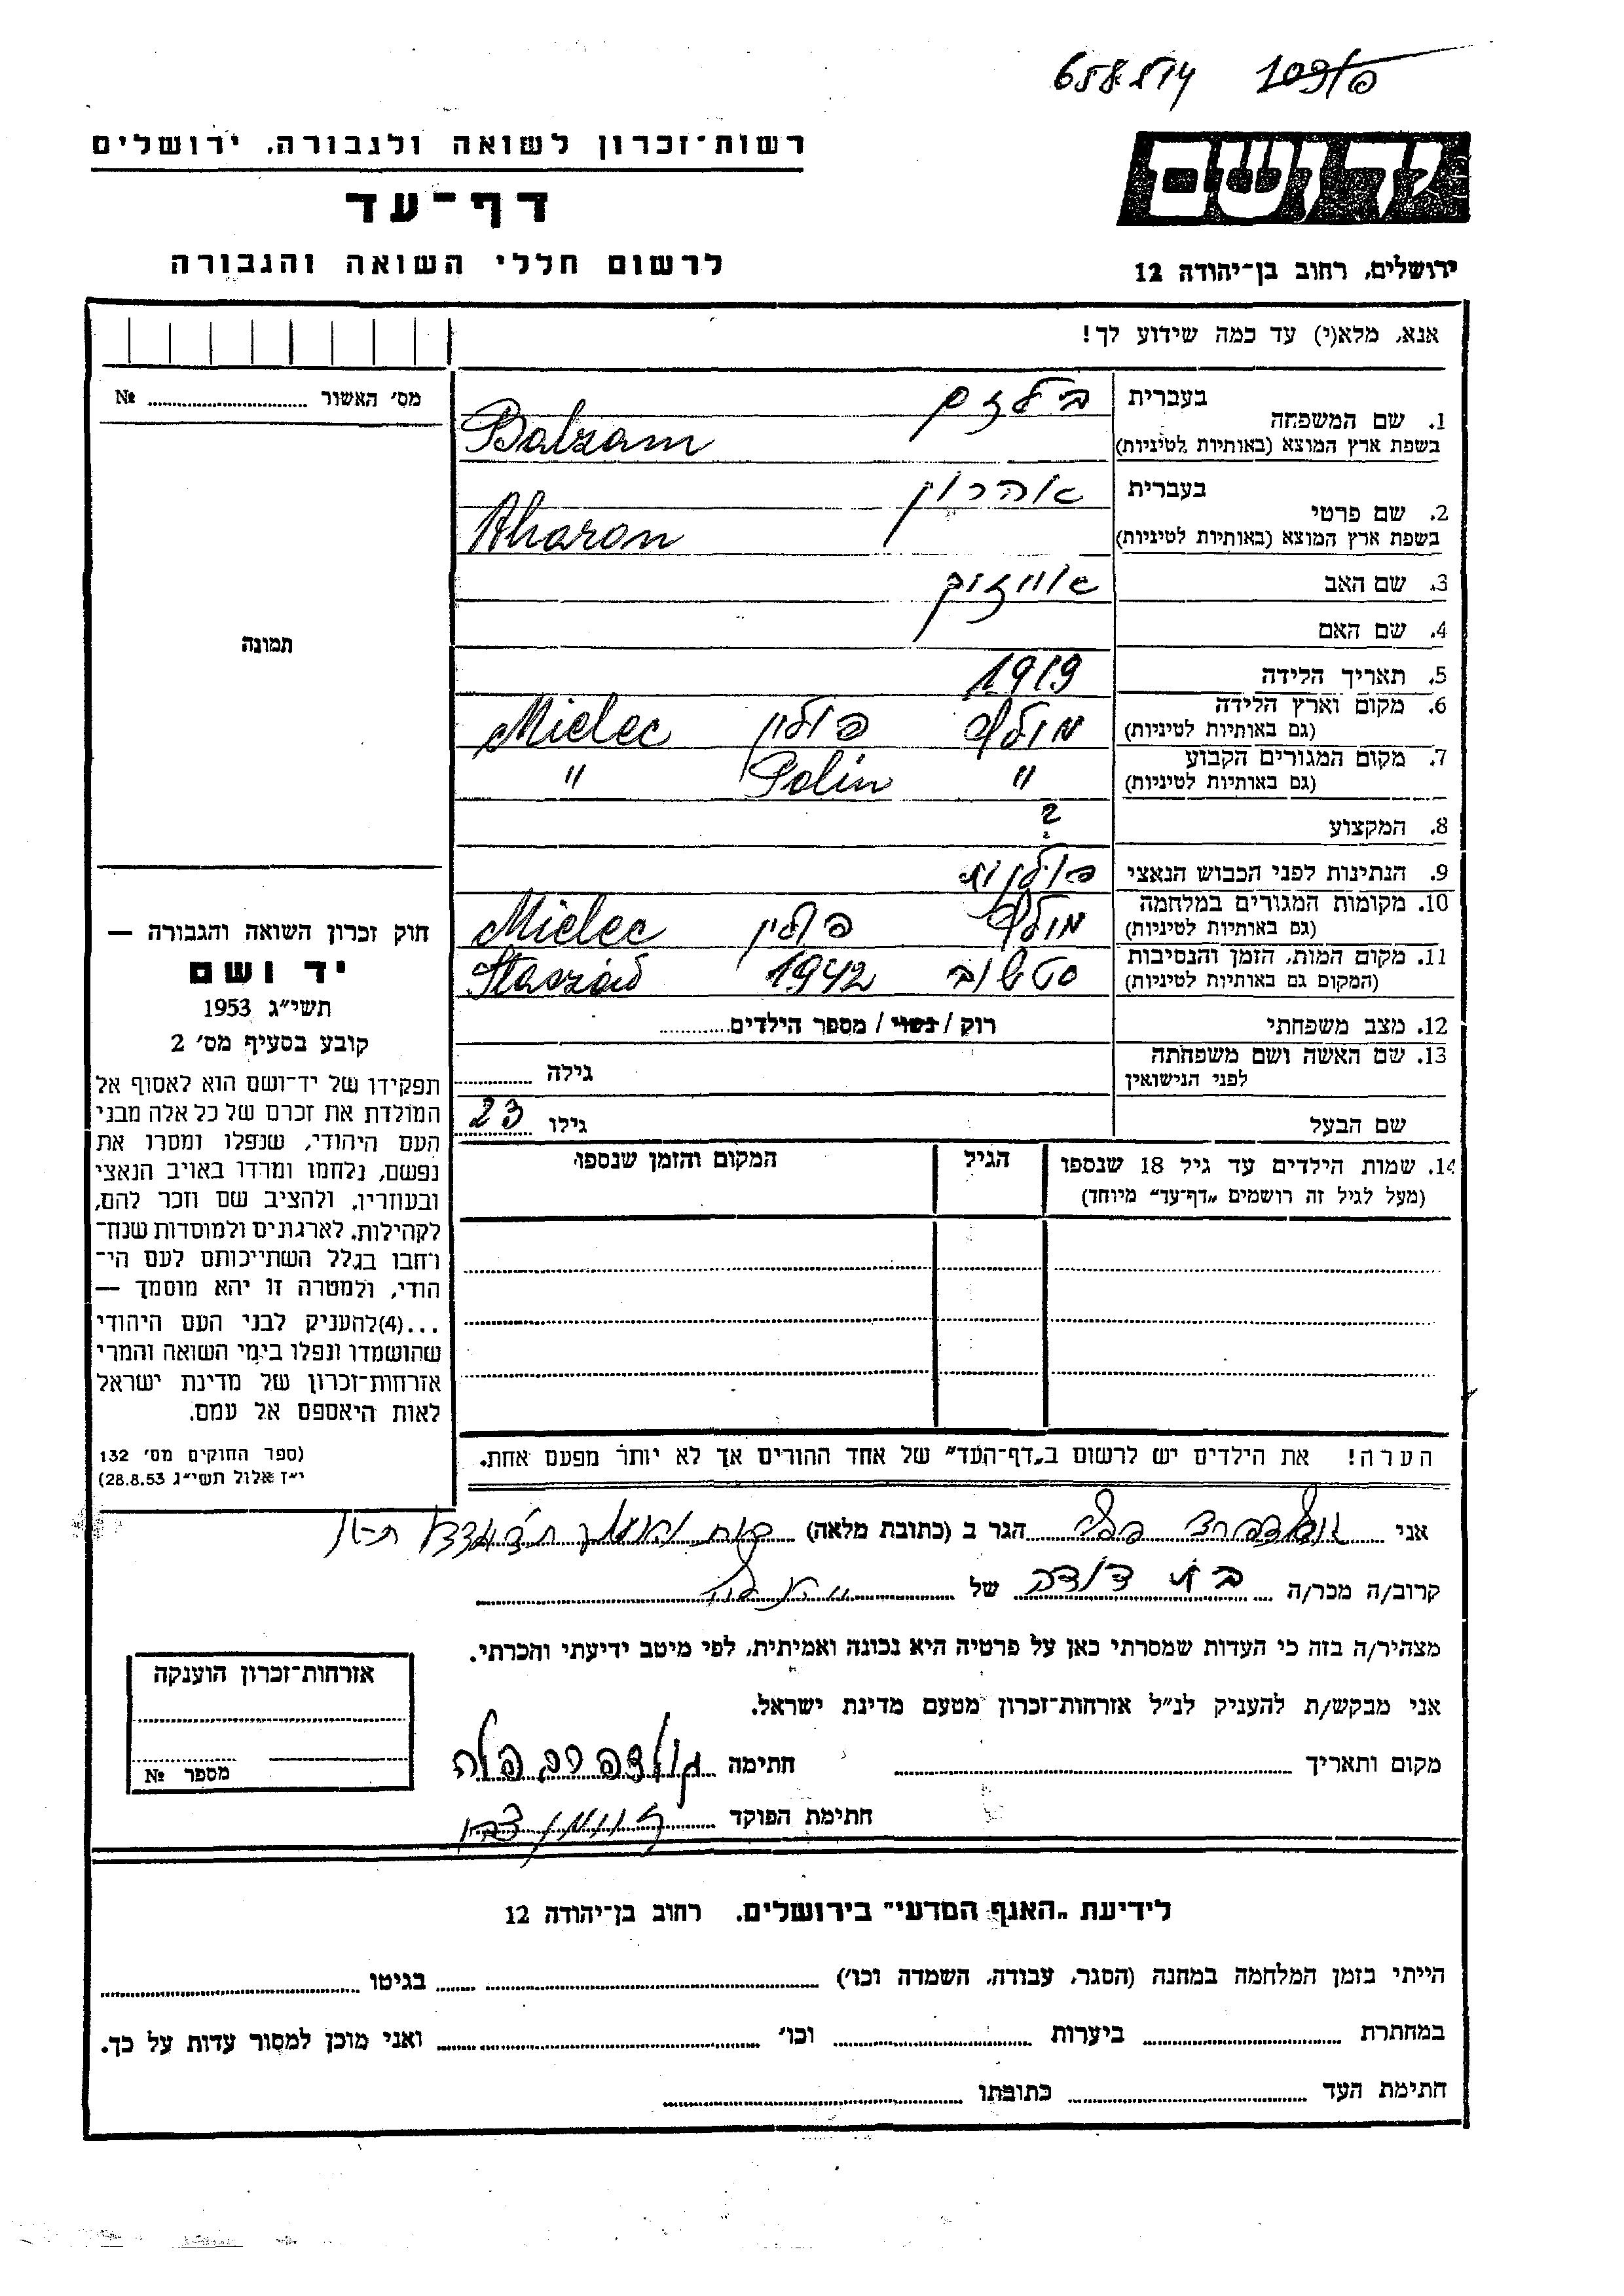 658.814
רשות־זכרון לשואה ולגבורה. ירושלים
יד ושם
דף־עד
לרשום חללי השואה והגבורה
ירושלים, רחוב בן־יהודה 12
אנא, מלא(י) עד כמה שידוע לך!
מס׳ האשור № 
1. שם המשפחה
בעברית בלזם
בשפת ארץ המוצא (באותיות לטיניות) Balzam
2. שם פרטי
בעברית אהרון
בשפת ארץ המוצא (באותיות לטיניות) Aharon
3. שם האב
4. שם האם
תמונה
5. תאריך הלידה 1919
6. מקום וארץ הלידה
(גם באותיות לטיניות) פולין Mielec
7. מקום המגורים הקבוע
(גם באותיות לטיניות) " Polin "
8. המקצוע ?
9. הנתינות לפני הכבוש הנאצי
10. מקומות המגורים במלחמה
(גם באותיות לטיניות) פולין Mielec
11. מקום המות, הזמן והנסיבות
(המקום גם באותיות לטיניות) 1942
12. מצב משפחתי רוק / נשוי / מספר הילדים
13. שם האשה ושם משפחתה
לפני הנישואין גילה
שם הבעל גילו 23
14. שמות הילדים עד גיל 18 שנספו
(מעל לגיל זה רושמים „דף־עד" מיוחד)
הגיל
המקום והזמן שנספו
חוק זכרון השואה והגבורה —
יד ושם
תשי״ג 1953
קובע בסעיף מס׳ 2
תפקידו של יד־ושם הוא לאסוף אל
המולדת את זכרם של כל אלה מבני
העם היהודי, שנפלו ומסרו את
נפשם, נלחמו ומרדו באויב הנאצי
ובעוזריו, ולהציב שם וזכר להם,
לקהילות, לארגונים ולמוסדות שנח־
רחבו בגלל השתייכותם לעם הי־
הודי, ולמטרה זו יהא מוסמך —
...(4)להעניק לבני העם היהודי
שהושמדו ונפלו בימי השואה והמרי
אזרחות־זכרון של מדינת ישראל
לאות היאספם אל עמם.
(ספר החוקים מס׳ 132
י״ז אלול תשי״ג 28.8.53)
הערה! את הילדים יש לרשום ב„דף־העד" של אחד ההורים אך לא יותר מפעם אחת.
אני הגר ב (כתובת מלאה)
קרוב/ה מכר/ה בת דודה של
מצהיר/ה בזה כי העדות שמסרתי כאן על פרטיה היא נכונה ואמיתית, לפי מיטב ידיעתי והכרתי.
אני מבקש/ת להעניק לנ״ל אזרחות־זכרון מטעם מדינת ישראל.
מקום ותאריך חתימה
חתימת הפוקד
אזרחות־זכרון הוענקה
מספר №
לידיעת „האגף המדעי" בירושלים. רחוב בן־יהודה 12
הייתי בזמן המלחמה במחנה (הסגר, עבודה, השמדה וכו׳) בגיטו
במחתרת ביערות וכו׳ ואני מוכן למסור עדות על כך.
חתימת העד כתובתו